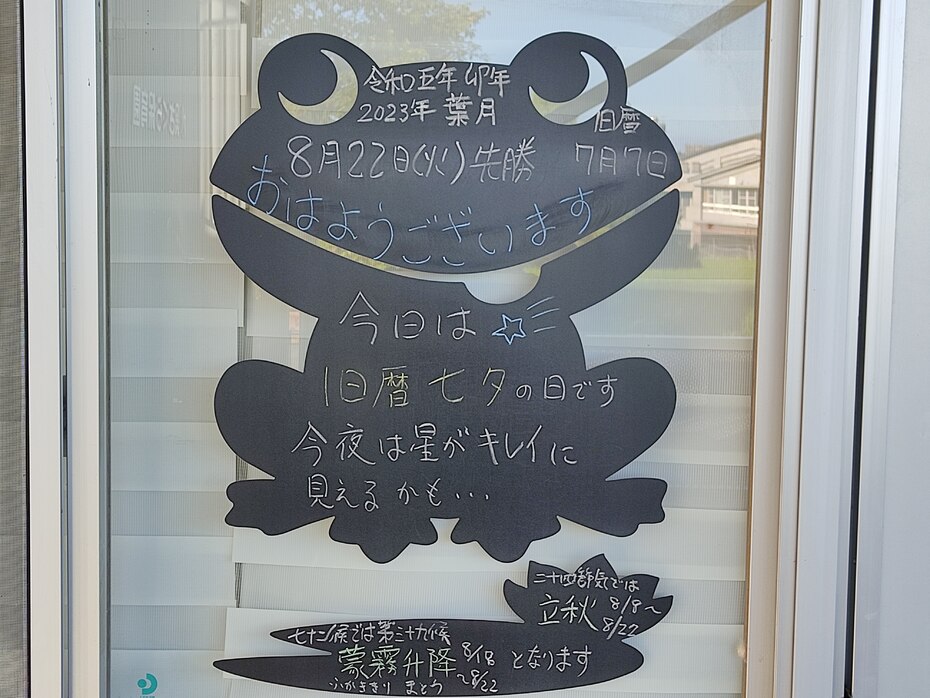 令和五年 卯年
2023年 葉月
旧暦
8月22日(火)先勝 7月7日
おはようございます
今日は☆
旧暦 七夕の日です
今夜は星がキレイに
見えるかも・・・
二十四節気では
立秋 8/8～
8/22
七十二候では第三十九候
蒙霧升降 8/18 となります
ふかききり まとう ～8/22